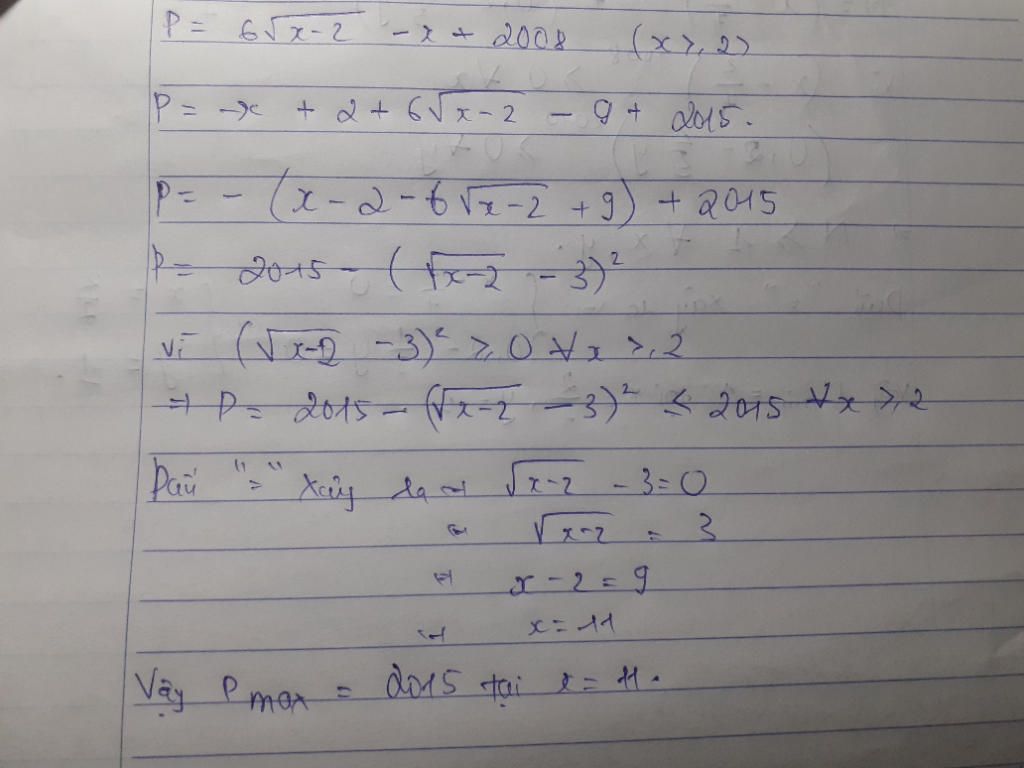 P = 6√(x-2) - x + 2008 (x ≥ 2)
P = -x + 2 + 6√(x-2) - 9 + 2015.
P = - (x - 2 - 6√(x-2) + 9) + 2015
P = 2015 - (√(x-2) - 3)²
Vì (√(x-2) - 3)² ≥ 0 ∀x ≥ 2
⇒ P = 2015 - (√(x-2) - 3)² ≤ 2015 ∀x ≥ 2
Dấu "=" xảy ra ⇔ √(x-2) - 3 = 0
⇔ √(x-2) = 3
⇔ x - 2 = 9
⇔ x = 11
Vậy Pmax = 2015 tại x = 11.